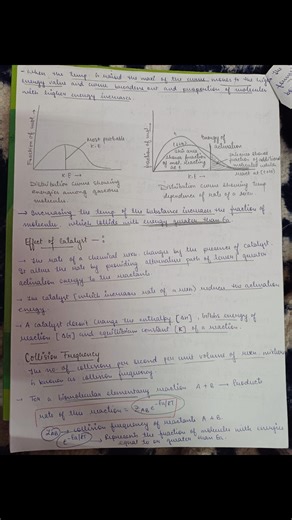 - When the temp is raised the max of the curve moves to the higher
energy value and curve broadens out and proportion of molecules
with higher energy increases
fraction of mol
most probable
K.E
K.E →
Distribution curve showing
energies among gaseous
molecules.
fraction of mol
Energy of
activation
area shows fraction
K.E →
Distribution curve showing temp
dependence of rate of a rxn
→ Increasing the temp of the substance increases the fraction of
molecules which collide with energy greater than Ea
Effect of Catalyst - :
→ The rate of a chemical rxn changes by the presence of catalyst
It alters the rate by providing alternative path of lower/greater
activation energy to the reactants
→ The catalyst (which increases rate of a rxn) reduces the activation
energy.
→ A catalyst doesn't change the enthalpy [ΔH], Gibbs energy of
reaction [ΔG] and equilibrium constant [K] of a reaction.
Collision Frequency
The no. of collisions per second per unit volume of rxn mixture
is known as collision frequency
→ For a bimolecular elementary reaction A + B → Products
rate of this reaction = Z_AB e^-Ea/RT
Z_AB → collision frequency of reactants A & B.
e^-Ea/RT → Represent the fraction of molecules with energies
equal to or greater than Ea.